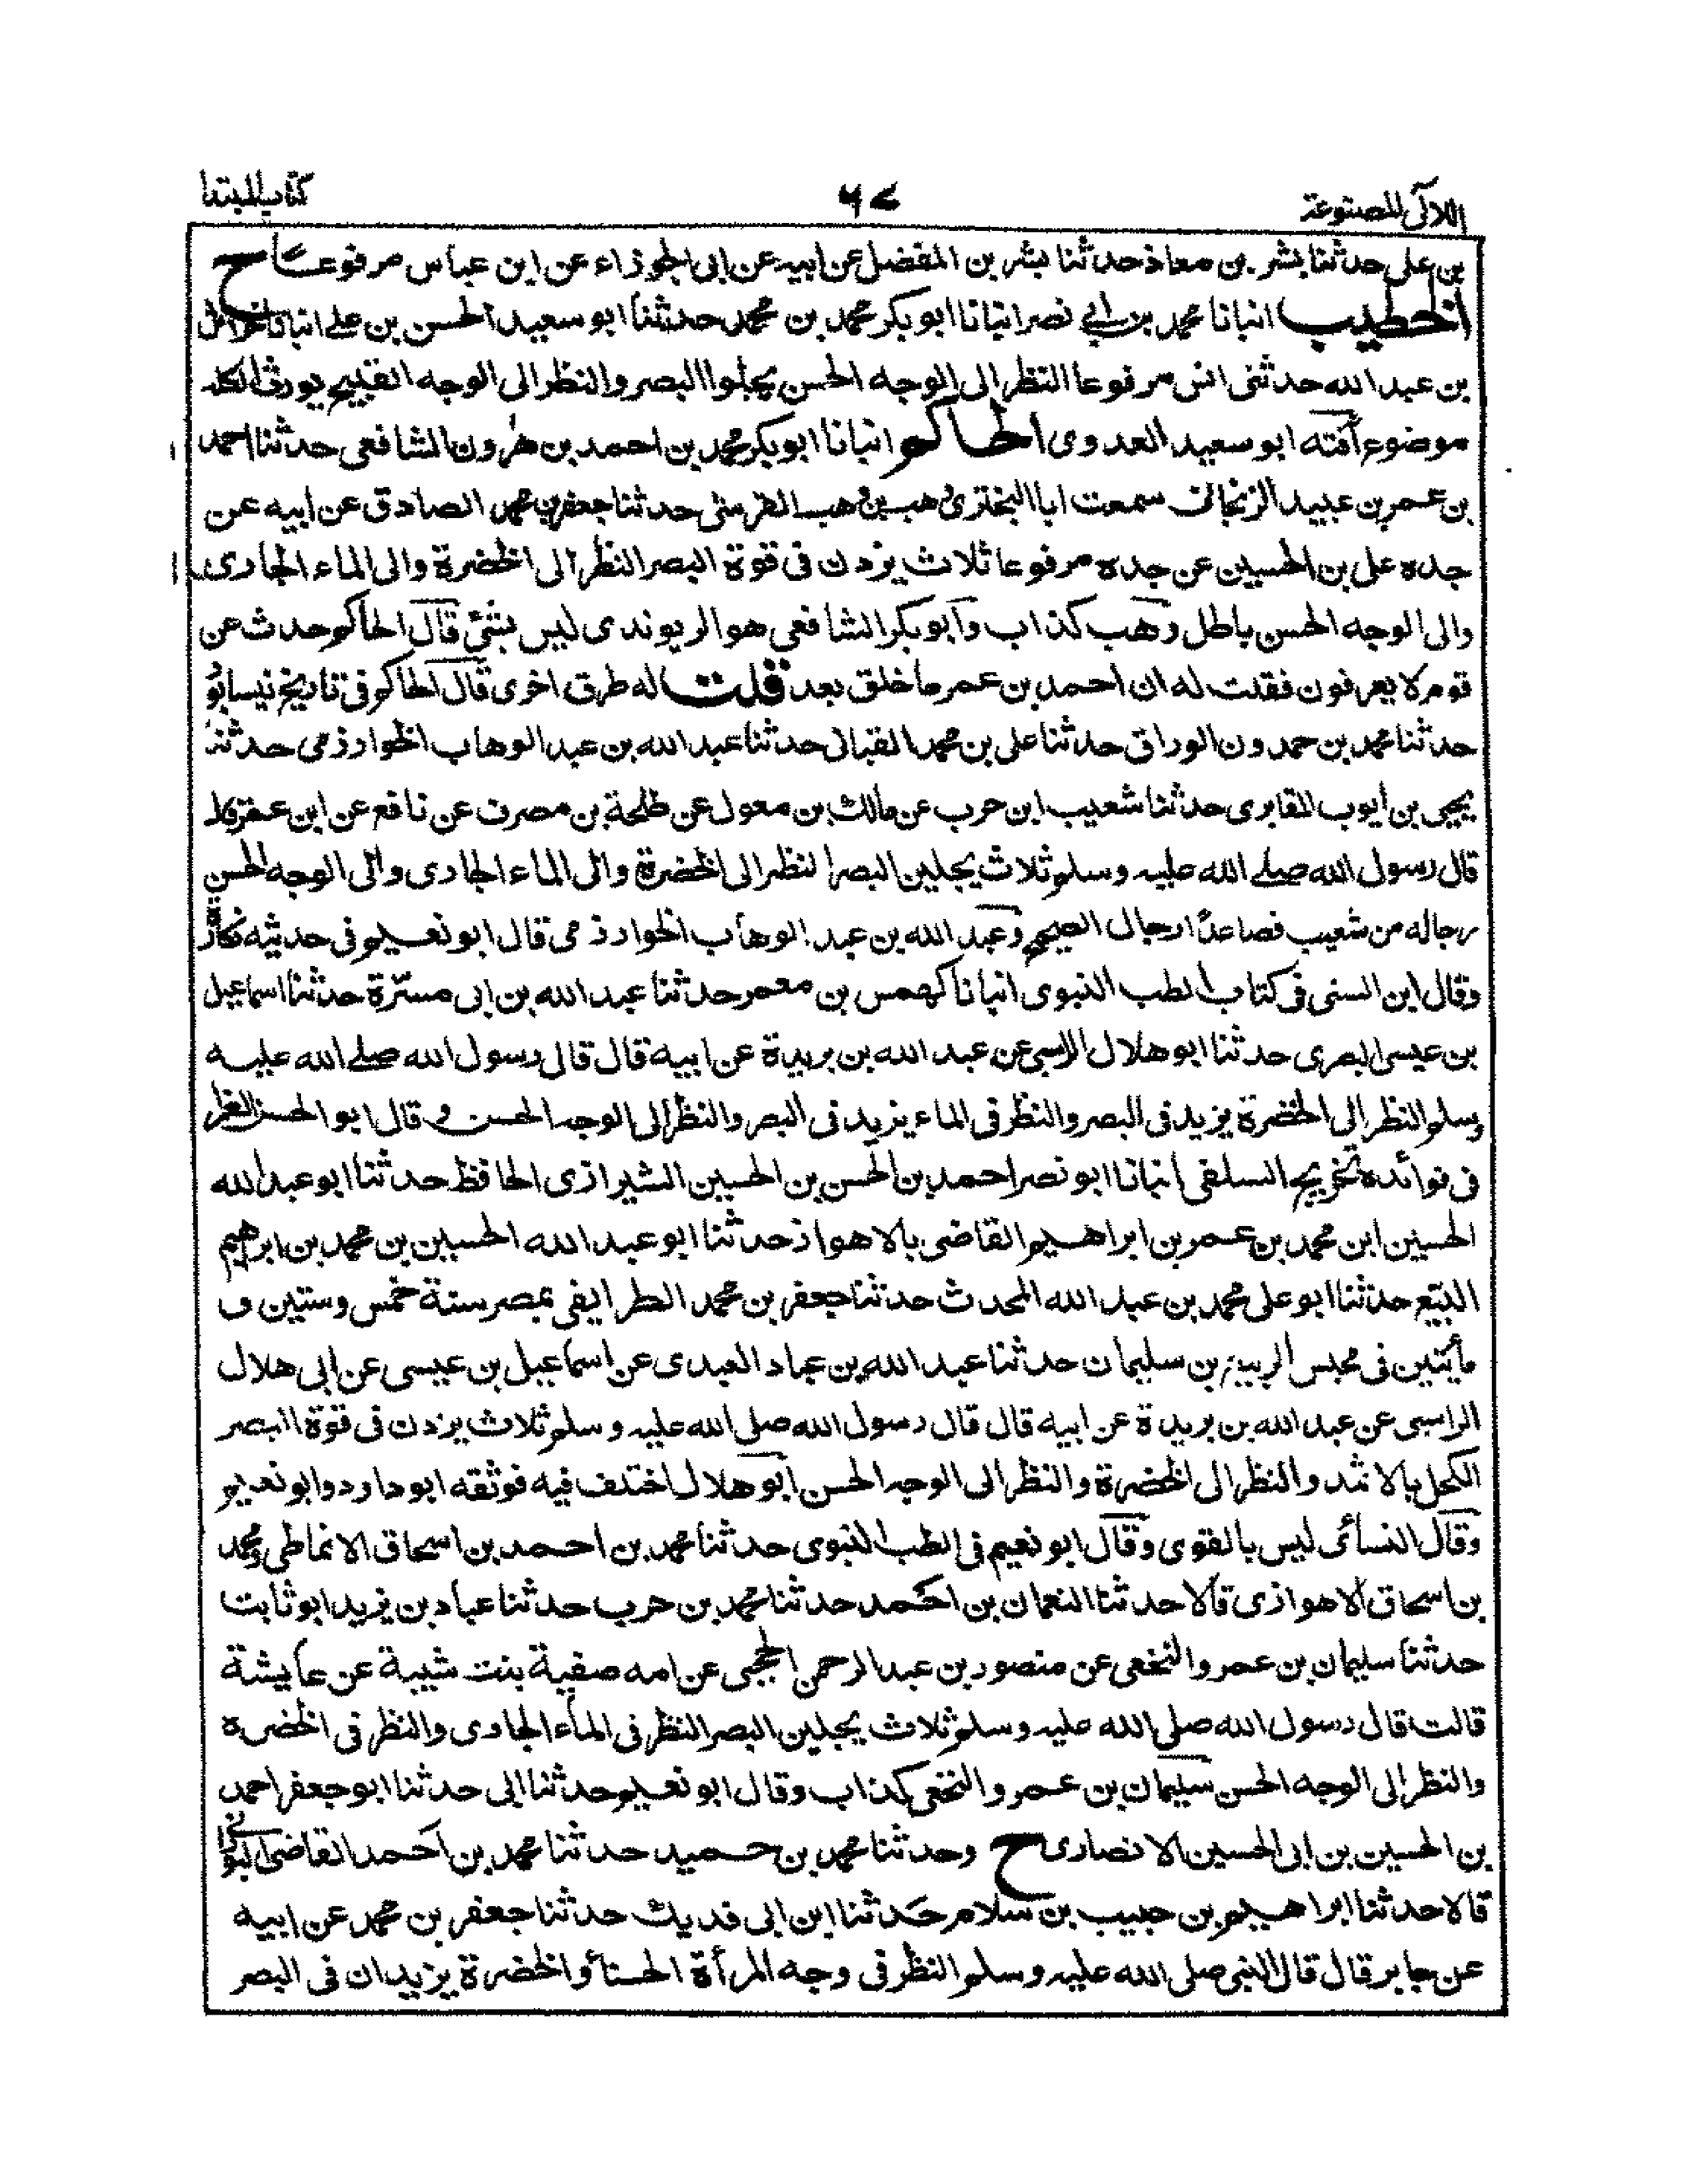 اللآلى المصنوعة
٦٧
كتاب المبتدا
بن على حدثنا بشر بن معاذ حدثنا بشر بن المفضل عن ابيه عن ابى الجوزاء عن ابن عباس مرفوعا ح
الخطيب انبانا محمد بن ابي نصر انبانا ابو بكر محمد بن محمد حدثنا ابو سعيد الحسن بن على انبانا خراش
بن عبد الله حدثنى انس مرفوعا النظر الى الوجه الحسن يجلوا البصر والنظر الى الوجه القبيح يورث الكلح
موضوع آفته ابو سعيد العدوى الحاكم انبانا ابو بكر محمد بن احمد بن هرون الشافعى حدثنا احمد
بن عمر بن عبيد الزنجانى سمعت ابا البخترى وهب بن وهب القرشى حدثنا جعفر بن محمد الصادق عن ابيه عن
جده على بن الحسين عن جده مرفوعا ثلاث يزدن فى قوة البصر النظر الى الخضرة والى الماء الجارى
والى الوجه الحسن باطل وهب كذاب وابو بكر الشافعى هو الريوندى ليس بشئ قال الحاكم حدث عن
قوم لا يعرفون فقلت له ان احمد بن عمر ما خلق بعد قلت له طرق اخرى قال الحاكم فى تاريخ نيسابور
حدثنا محمد بن حمدون الوراق حدثنا على بن محمد القبانى حدثنا عبد الله بن عبد الوهاب الخوارزمى حدثنا
يحيى بن ايوب المقابرى حدثنا شعيب ابن حرب عن مالك بن معول عن طلحة بن مصرف عن نافع عن ابن عمر قال
قال رسول الله صلے الله عليه وسلم ثلاث يجلين البصر النظر الى الخضرة والى الماء الجارى والى الوجه الحسن
رجاله من شعيب فصاعدًا رجال الصحيح وعبد الله بن عبد الوهاب الخوارزمى قال ابو نعيم فى حديثه نكارة
وقال ابن السنى فى كتاب الطب النبوى انبانا كهمس بن معمر حدثنا عبد الله بن ابى مسرّة حدثنا اسماعيل
بن عيسى البصرى حدثنا ابو هلال الراسبى عن عبد الله بن بريدة عن ابيه قال قال رسول الله صلے الله عليه
وسلم النظر الى الخضرة يزيد فى البصر والنظر فى الماء يزيد فى البصر والنظر الى الوجه الحسن و قال ابو الحسن الفرا
فى فوائده تخريج السلفى انبانا ابو نصر احمد بن الحسن بن الحسين الشيرازى الحافظ حدثنا ابو عبد الله
الحسين ابن محمد بن عمر بن ابراهيم القاضى بالاهواز حدثنا ابو عبد الله الحسين بن محمد بن ابراهيم
البيّع حدثنا ابو على محمد بن عبد الله المحدث حدثنا جعفر بن محمد الطرايفى بمصر سنة خمس وستين و
مأيتين فى مجلس الربيع بن سليمان حدثنا عبد الله بن عباد العبدى عن اسماعيل بن عيسى عن ابى هلال
الراسبى عن عبد الله بن بريدة عن ابيه قال قال رسول الله صلى الله عليه وسلم ثلاث يزدن فى قوة البصر
الكحل بالاثمد والنظر الى الخضرة والنظر الى الوجه الحسن ابو هلال اختلف فيه فوثقه ابو داود وابو نعيم
وقال النسائى ليس بالقوى وقال ابو نعيم فى الطب النبوى حدثنا محمد بن احمد بن اسحاق الانماطى ومحمد
بن اسحاق الاهوازى قالا حدثنا النعمان بن احمد حدثنا محمد بن حرب حدثنا عباد بن يزيد ابو ثابت
حدثنا سليمان بن عمرو النخعى عن منصور بن عبد الرحمن الحجبى عن امه صفية بنت شيبة عن عايشة
قالت قال رسول الله صلى الله عليه وسلم ثلاث يجلين البصر النظر فى الماء الجارى والنظر فى الخضرة
والنظر الى الوجه الحسن سليمان بن عمرو النخعى كذاب وقال ابو نعيم حدثنا ابى حدثنا ابو جعفر احمد
بن الحسين بن ابى الحسين الانصارى ح وحدثنا محمد بن حميد حدثنا محمد بن احمد القاضى البورانى
قالا حدثنا ابراهيم بن حبيب بن سلام حدثنا ابن ابى فديك حدثنا جعفر بن محمد عن ابيه
عن جابر قال قال النبى صلى الله عليه وسلم النظر فى وجه المرأة الحسنأ والخضرة يزيدان فى البصر